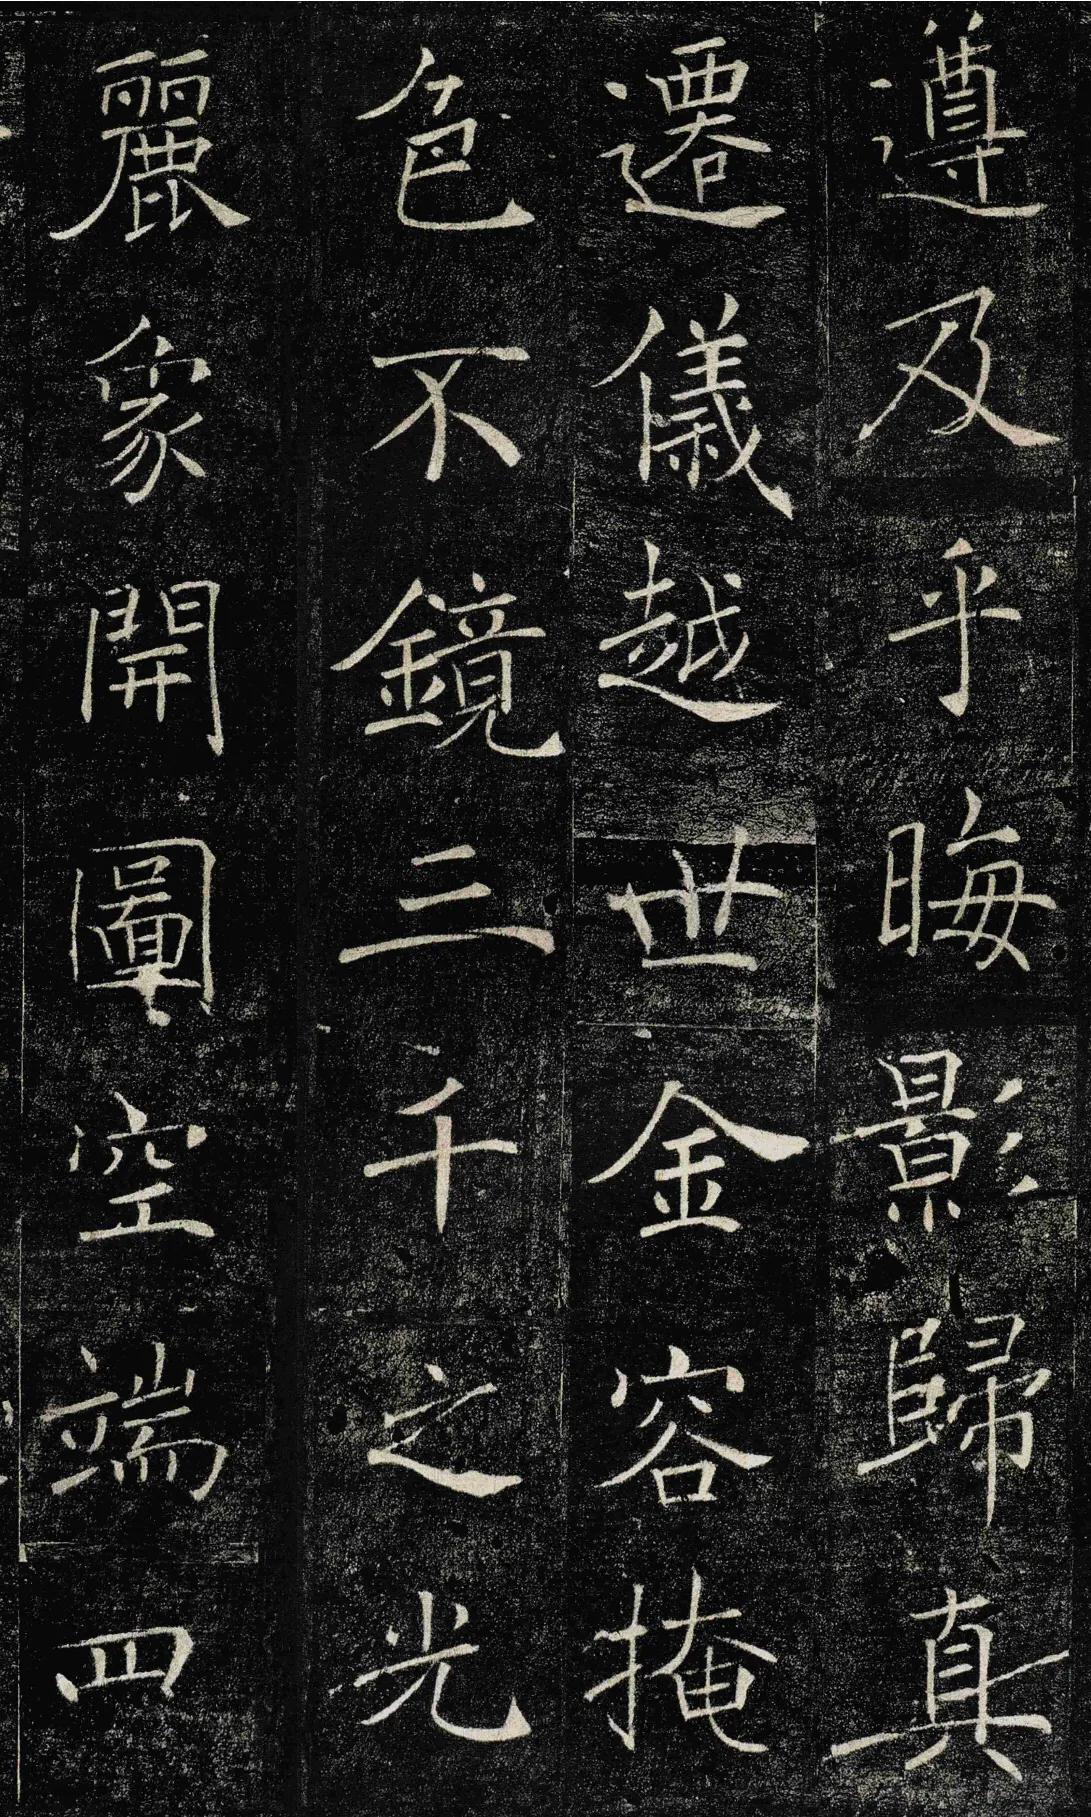 遵及乎晦影歸真
遷儀越世金容掩
色不鏡三千之光
麗象開圖空端四